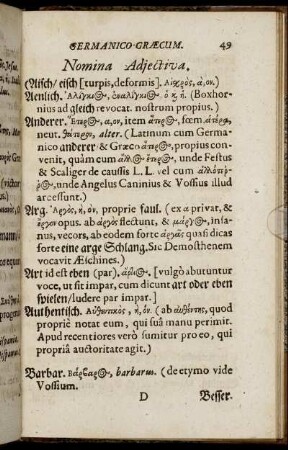 GERMANICO-GRÆCUM. 49
Nomina Adjectiva.
(Aisch/ eisch [turpis, deformis]. Αἰσχρὸς, ὰ, ον.)
Aenlich. Ἀλίγκιος, ἐναλίγκιος. ὁ κ̀ ἡ. (Boxhor-
nius ad gleich revocat. nostrum propius.)
Anderer. Ἕτερος, α, ον, item ἅτερος, fœm. ἁτέρα,
neut. θάτερον, alter. (Latinum cum Germa-
nico anderer & Græco ἅτερος, propius con-
venit, quàm eum ἀλλὸ ἕτερος, unde Festus
& Scaliger de caussis L. L. vel cum
unde Angelus Caninius & Vossius illud
arcessunt.)
Arg. Ἀργὸς, ὴ, ὸν, proprie faul. (ex a privat, &
ἔργον opus. ab ἀργὸς flectunt, & μάργος, insa-
nus, vecors, ab eodem forte ἀργᾶς quasi dicas
forte eine arge Schlang. Sic Demosthenem
vocavit Æschines.)
Art id est eben (par), ἄρτιος. [vulgò abutuntur
voce, ut sit impar, cum dicunt art oder eben
spielen/ ludere par impar.]
Authentisch. Αὐθεντικὸς, ὴ, ὸν. (ab αὐθέντης, quod
propriè notat eum, qui suâ manu perimit.
Apud recentiores verò sumitur pro eo, qui
propriâ auctoritate agit.)
Barbar. Βάρβαρος, barbarus. (de etymo vide
Vossium.
D Besser.